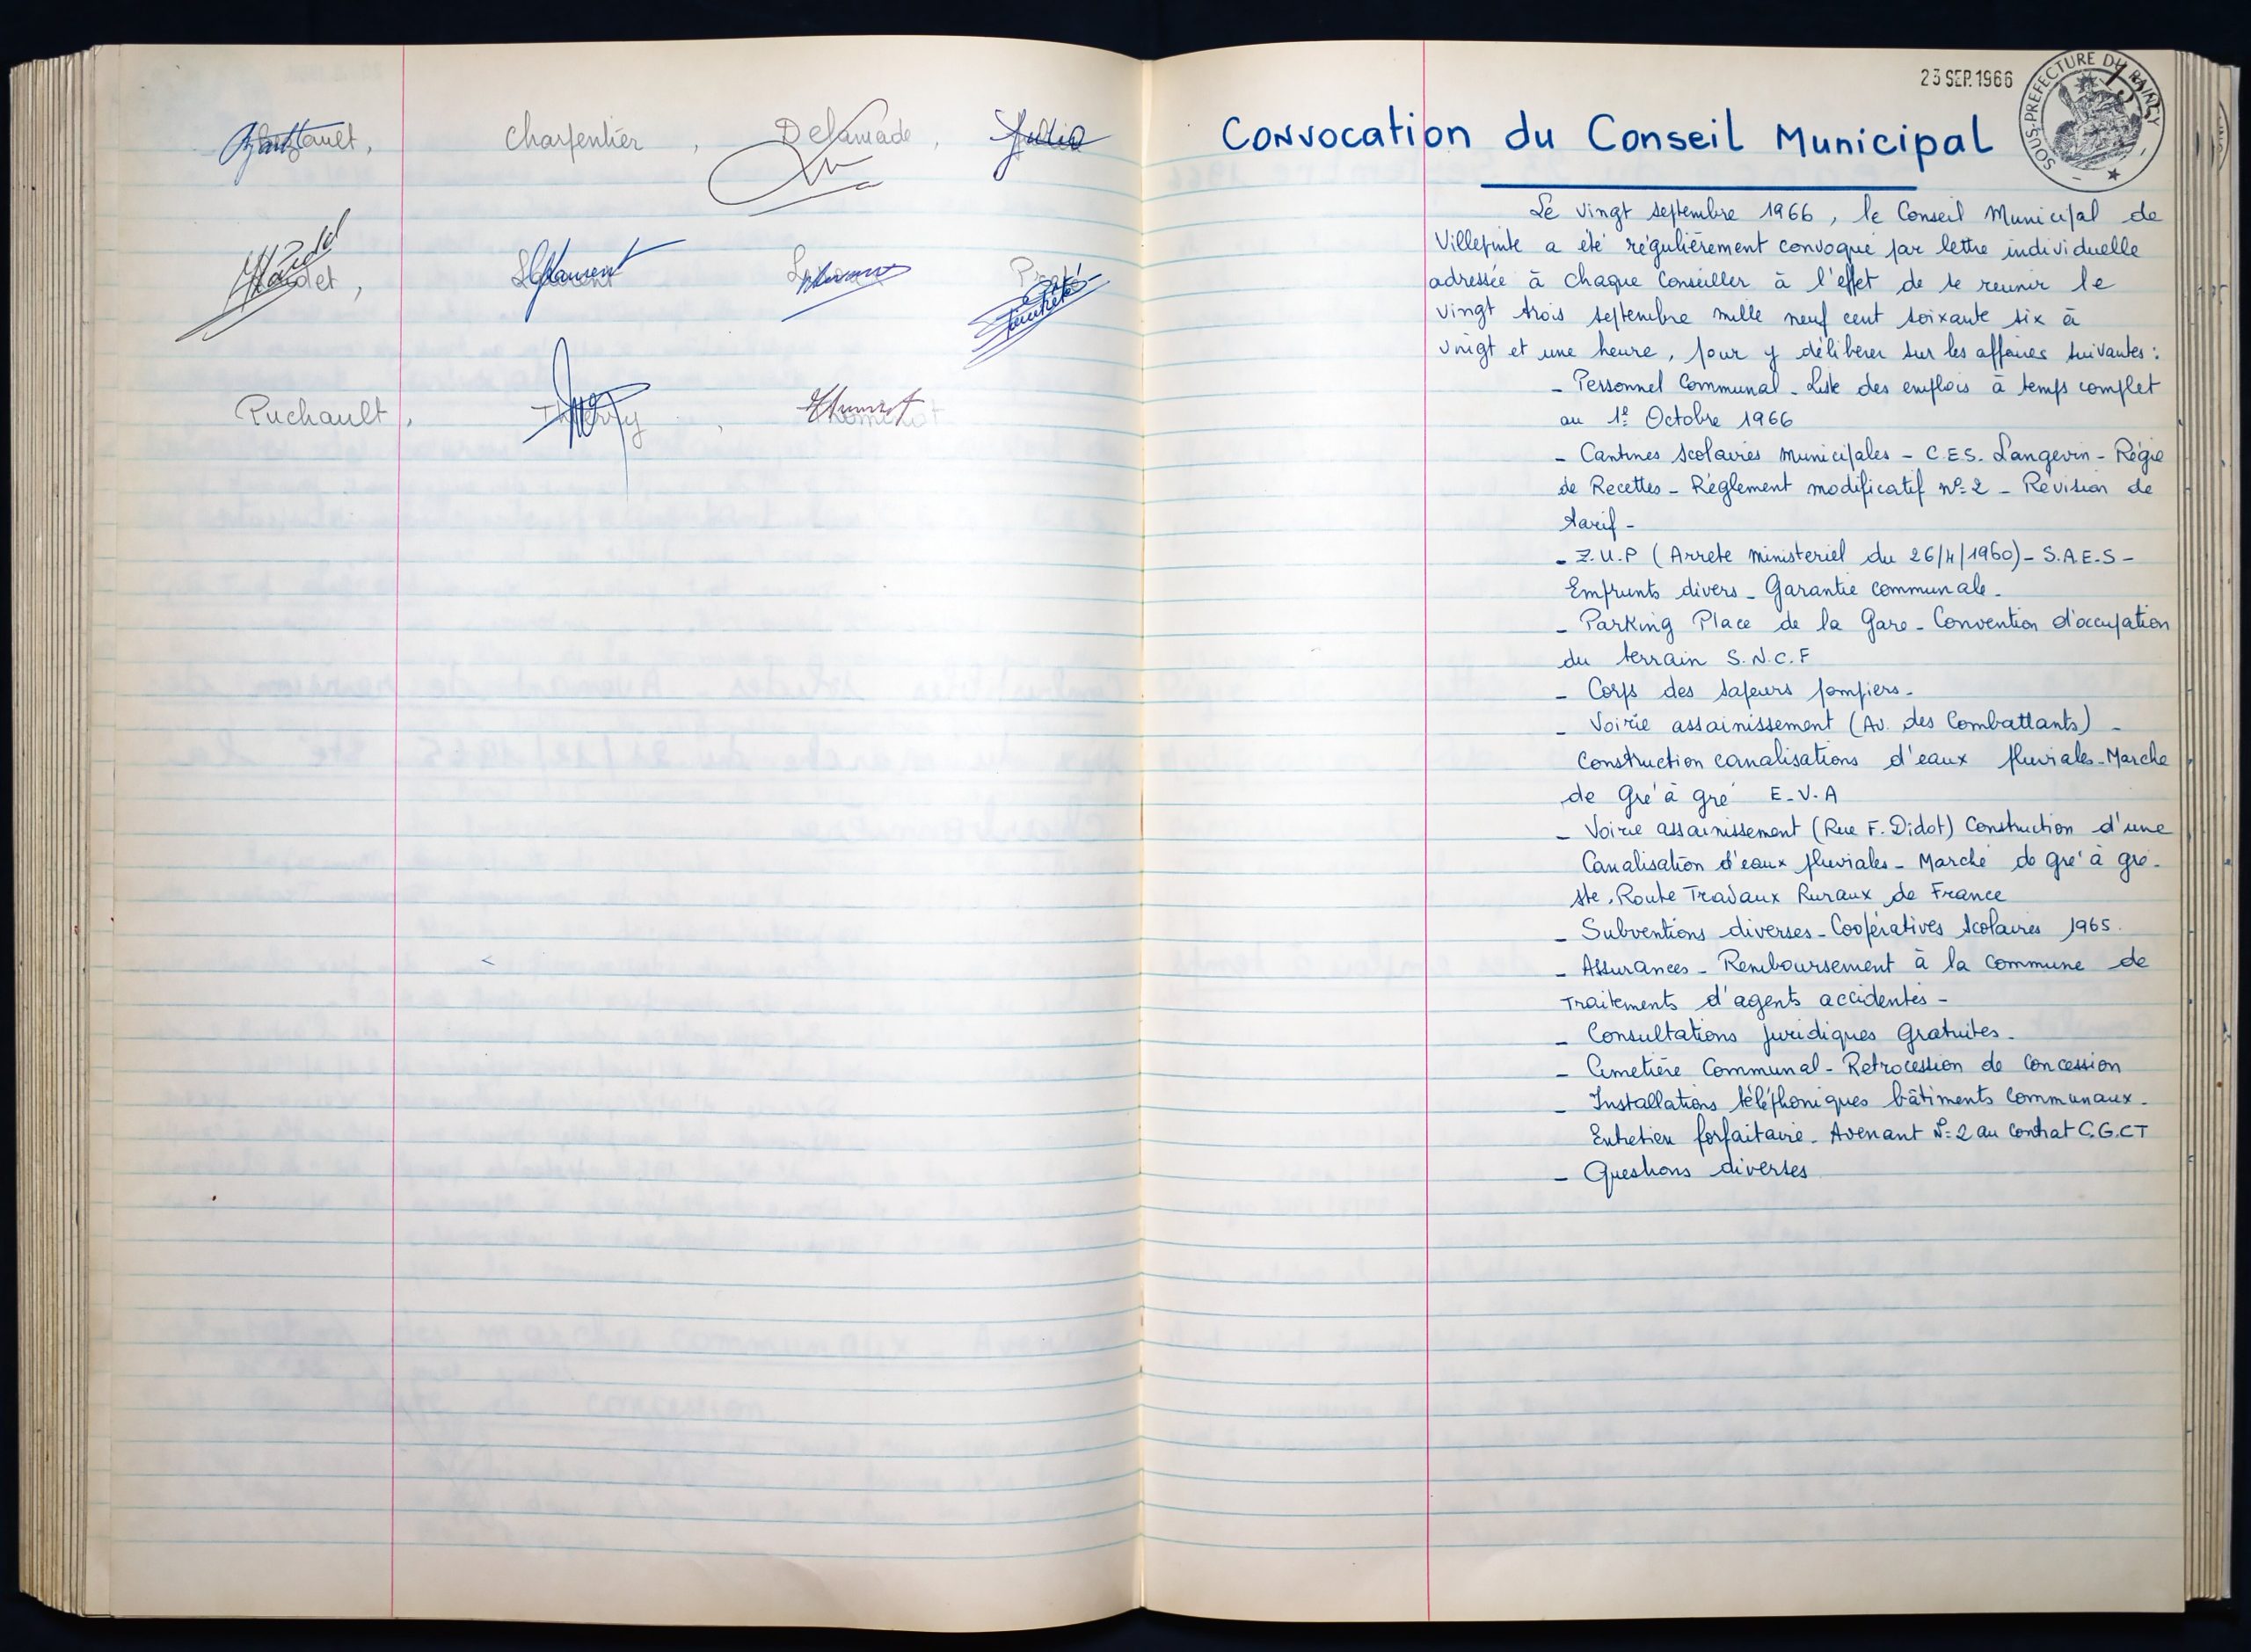 Charpentier , Delamade ,
Laurent
Puchault , Thierry , Thomenot
23 SEP. 1966
SOUS-PREFECTURE DU RAINCY
Convocation du Conseil Municipal
Le vingt septembre 1966, le Conseil Municipal de
Villepinte a été régulièrement convoqué par lettre individuelle
adressée à chaque Conseiller à l'effet de se reunir le
vingt trois septembre mille neuf cent soixante six à
vingt et une heure, pour y délibérer sur les affaires suivantes :
- Personnel Communal - Liste des emplois à temps complet
au 1er Octobre 1966
- Cantines Scolaires Municipales - C.E.S. Langevin - Régie
de Recettes - Réglement modificatif n° 2 - Revision de
tarif -
- Z.U.P (Arrete ministeriel du 26/4/1960) - S.A.E.S -
Emprunts divers - Garantie communale -
- Parking Place de la Gare - Convention d'occupation
du terrain S.N.C.F
- Corps des sapeurs pompiers -
- Voirie assainissement (Av. des Combattants) -
Construction canalisations d'eaux pluviales - Marche
de Gré à gré E.V.A
- Voirie assainissement (Rue F. Didot) Construction d'une
Canalisation d'eaux pluviales - Marché de gré à gré -
Ste. Route Travaux Ruraux de France
- Subventions diverses - Coopératives Scolaires 1965.
- Assurances - Remboursement à la Commune de
Traitements d'agents accidentés -
- Consultations juridiques Gratuites -
- Cimetière Communal - Retrocession de Concession
- Installations téléphoniques bâtiments Communaux -
Entretien forfaitaire - Avenant N° 2 au Contrat C.G.C.T
- Questions diverses